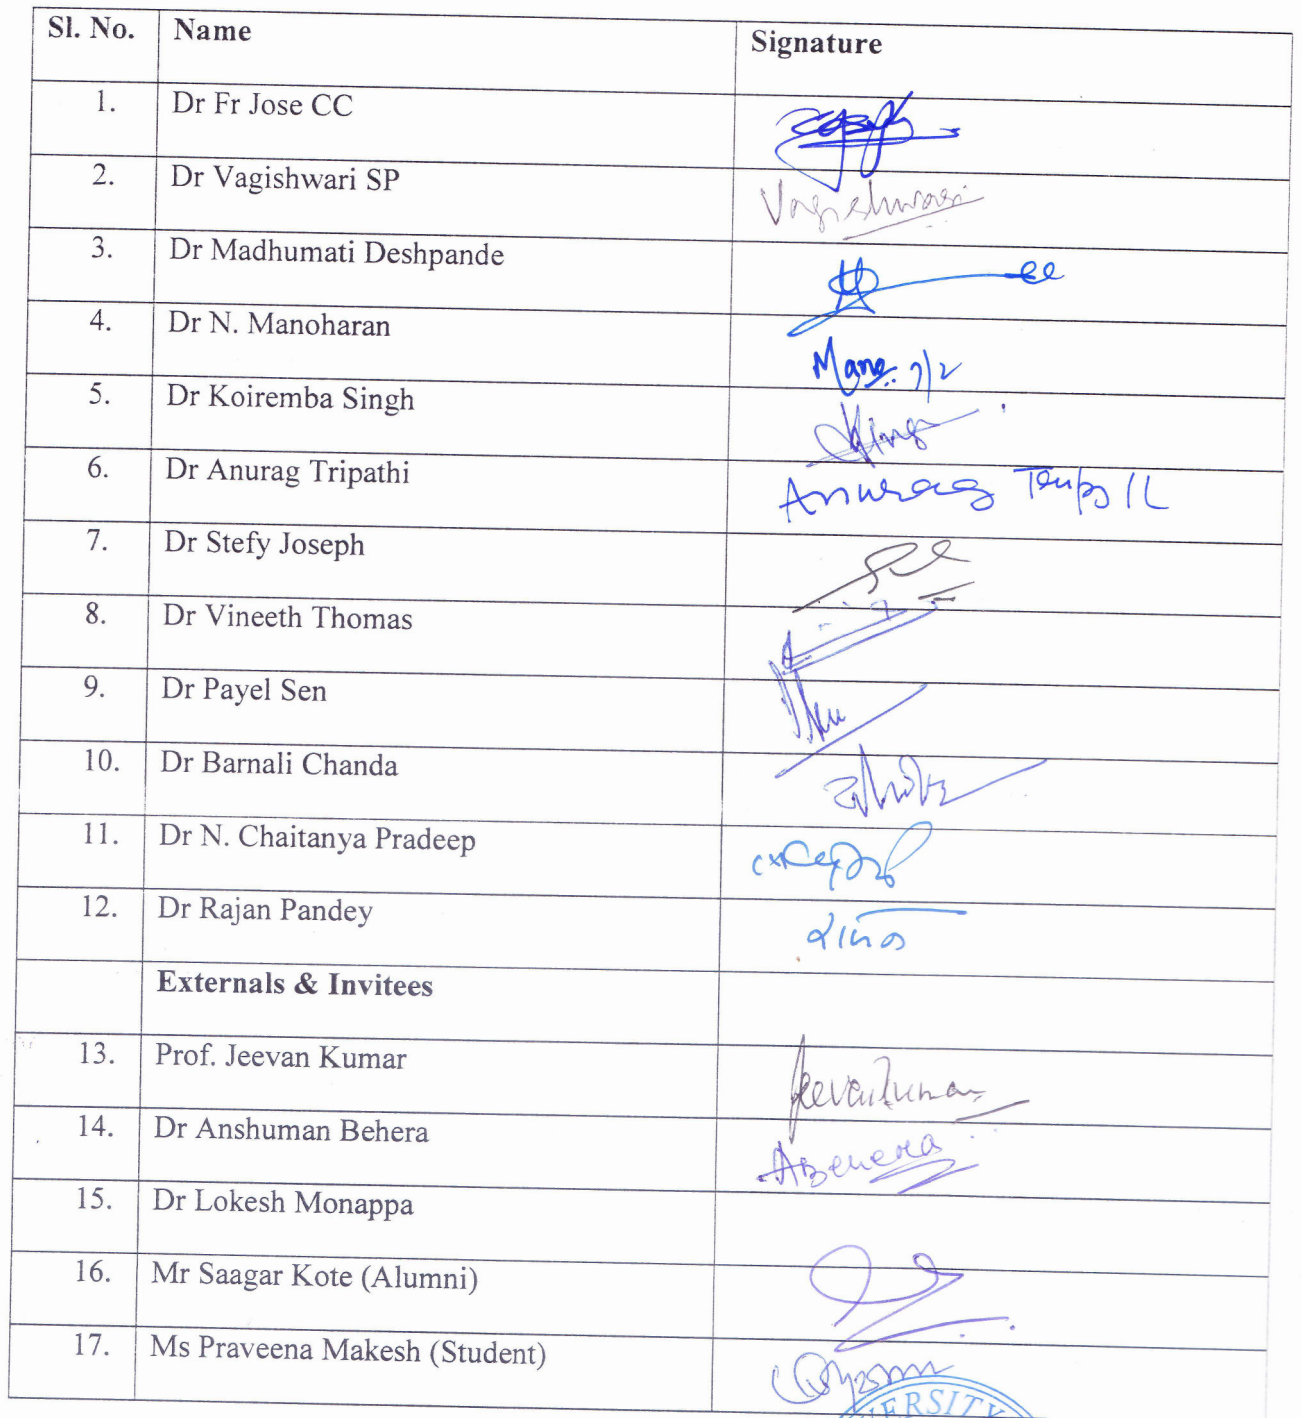 Sl. No. Name Signature
1. Dr Fr Jose CC
2. Dr Vagishwari SP Vagishwari
3. Dr Madhumati Deshpande
4. Dr N. Manoharan Mano 7/2
5. Dr Koiremba Singh
6. Dr Anurag Tripathi Anurag
7. Dr Stefy Joseph
8. Dr Vineeth Thomas
9. Dr Payel Sen
10. Dr Barnali Chanda
11. Dr N. Chaitanya Pradeep
12. Dr Rajan Pandey
Externals & Invitees
13. Prof. Jeevan Kumar Jeevankumar
14. Dr Anshuman Behera ABehera
15. Dr Lokesh Monappa
16. Mr Saagar Kote (Alumni)
17. Ms Praveena Makesh (Student)
VERSITY